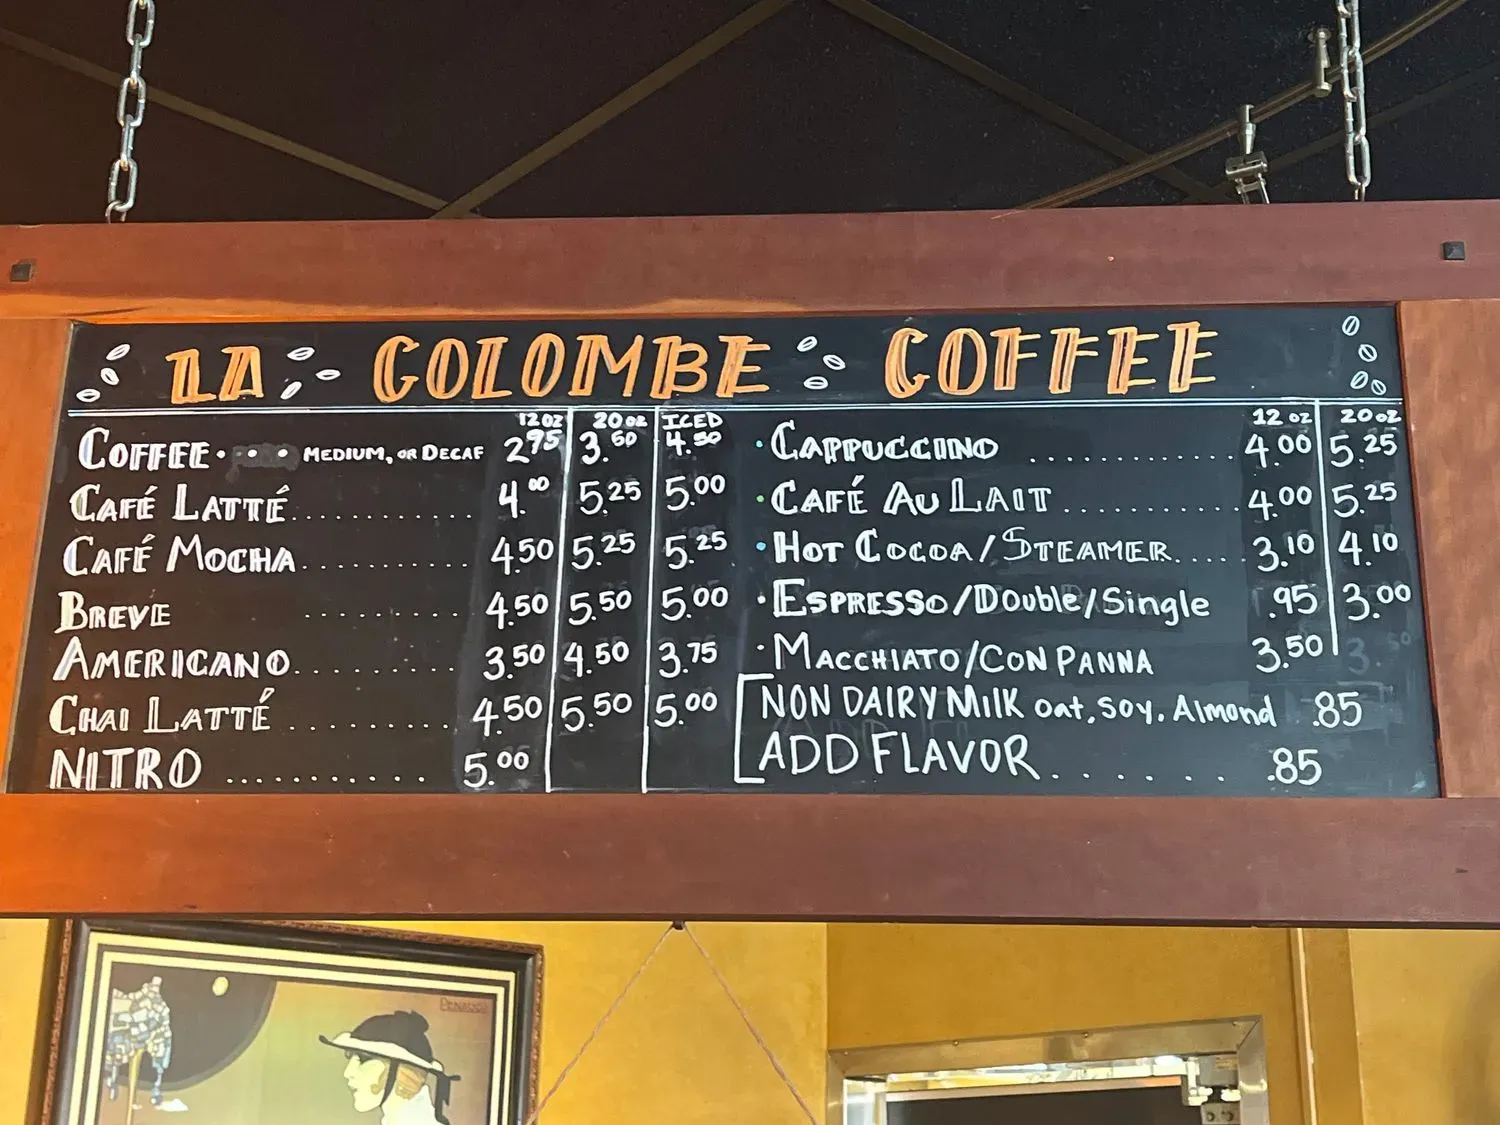 LA COLOMBE COFFEE
12oz 20oz ICED
COFFEE · · · MEDIUM, OR DECAF 2.95 3.50 4.50
CAFÉ LATTÉ............ 4.00 5.25 5.00
CAFÉ MOCHA........... 4.50 5.25 5.25
BREVE ......... 4.50 5.50 5.00
AMERICANO.......... 3.50 4.50 3.75
CHAI LATTÉ .......... 4.50 5.50 5.00
NITRO ........... 5.00
12 oz 20oz
· CAPPUCCINO ............ 4.00 5.25
· CAFÉ AU LAIT .......... 4.00 5.25
· HOT COCOA/STEAMER..... 3.10 4.10
· ESPRESSO/Double/Single .95 3.00
· MACCHIATO/CON PANNA 3.50
NON DAIRY MILK oat, soy, Almond .85
ADD FLAVOR....... .85